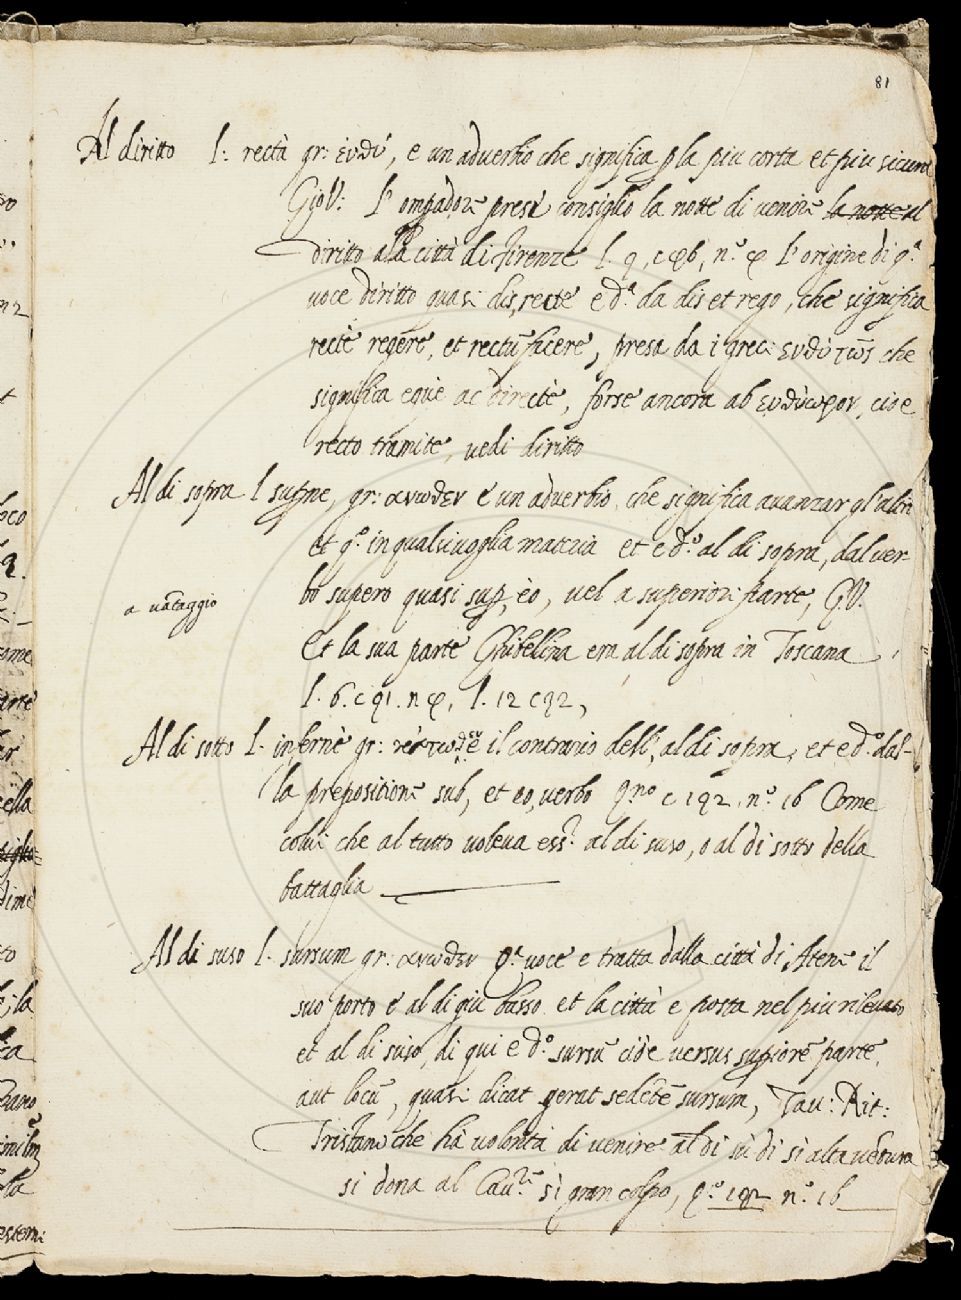 81
Al diritto l: rectà gr: ἐυθύ, e un adverbio che significa p la piu corta et piu sicura
Gio V: l' omperadore prese consiglio la notte di venire la notte al
diritto alla città di firenze l. 9, c n.º l' origine di q.ª
voce diritto quasi dis, recte e d.ª da dis et rego, che significa
recte regere, et rectũ ficere, presa da i greci ευθύτως che
significa eque ac directè, forse ancora ab ευθύωρον, cioe
recto tramite, vedi diritto
Al di sopra l supne, gr: ανωθεν e un adverbio, che significa avanzar gl'altri
et q.º in qualsivoglia materia et e d.º al di sopra, dal ver-
bo supero quasi sup, eo, vel a superiori parte, G.V.
a vãtaggio
Et la sua parte Ghibellina era al di sopra in Toscana
l. 6. c 91. n l. 12 c 92,
Al di sotto l. infernè gr: è il contrario dell', al di sopra, et e d.º dal-
la prepositione sub, et eo, verbo c 192. n.º 16 Come
colui che al tutto voleva ess.r al di suso, o al di sotto della
battaglia
Al di suso l. sursum gr: ανωθεν q.ª voce e tratta dalla città di Atene il
suo porto è al di giu basso et la città e posta nel piu rilevato
et al di suso, di qui e d.º sursũ cioe versus supiorẽ partẽ,
aut locũ, quasi dicat gerat sedẽtẽ sursum, Tav: Rit:
Tristano che hà volontà di venire al di sù di sì alta vẽtura
si dona al Cav.re sì gran colpo, 192 n.º 16